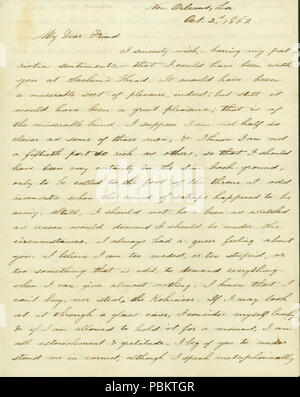 New Orleans, La
Oct. 2d, 1862
My Dear Friend
I sincerely wish, barring my pat
riotic sentiments, that I could have been with
you at Sachem's Head. It would have been
a miserable sort of pleasure, indeed; but still it
would have been a great pleasure, that is of
the miserable kind. I suppose I am not half so
clever as some of those men, & I know I am not
a fiftieth part so rich as others, so that I should
have been very certainly in the dim back ground,
only to be called to the foot of the throne at odd
moments when the crowd of satraps happened to be
away. Still, I should not have been as wretched
as reason would demand I should be under the
circumstances. I always had a queer feeling about
you. I believe I am too modest, or too stupid, or
too something that is odd, to demand everything
when I can give almost nothing. I know that I
can't buy, nor steal, the Kohinoor. If I may look
at it through a glass case, I consider myself lucky
& if I am allowed to hold it for a moment, I am
all astonishment & gratitude. I beg of you to under
stand me in earnest, although I speak metaphorically
alamy
www.alamy.com
PBKTGR